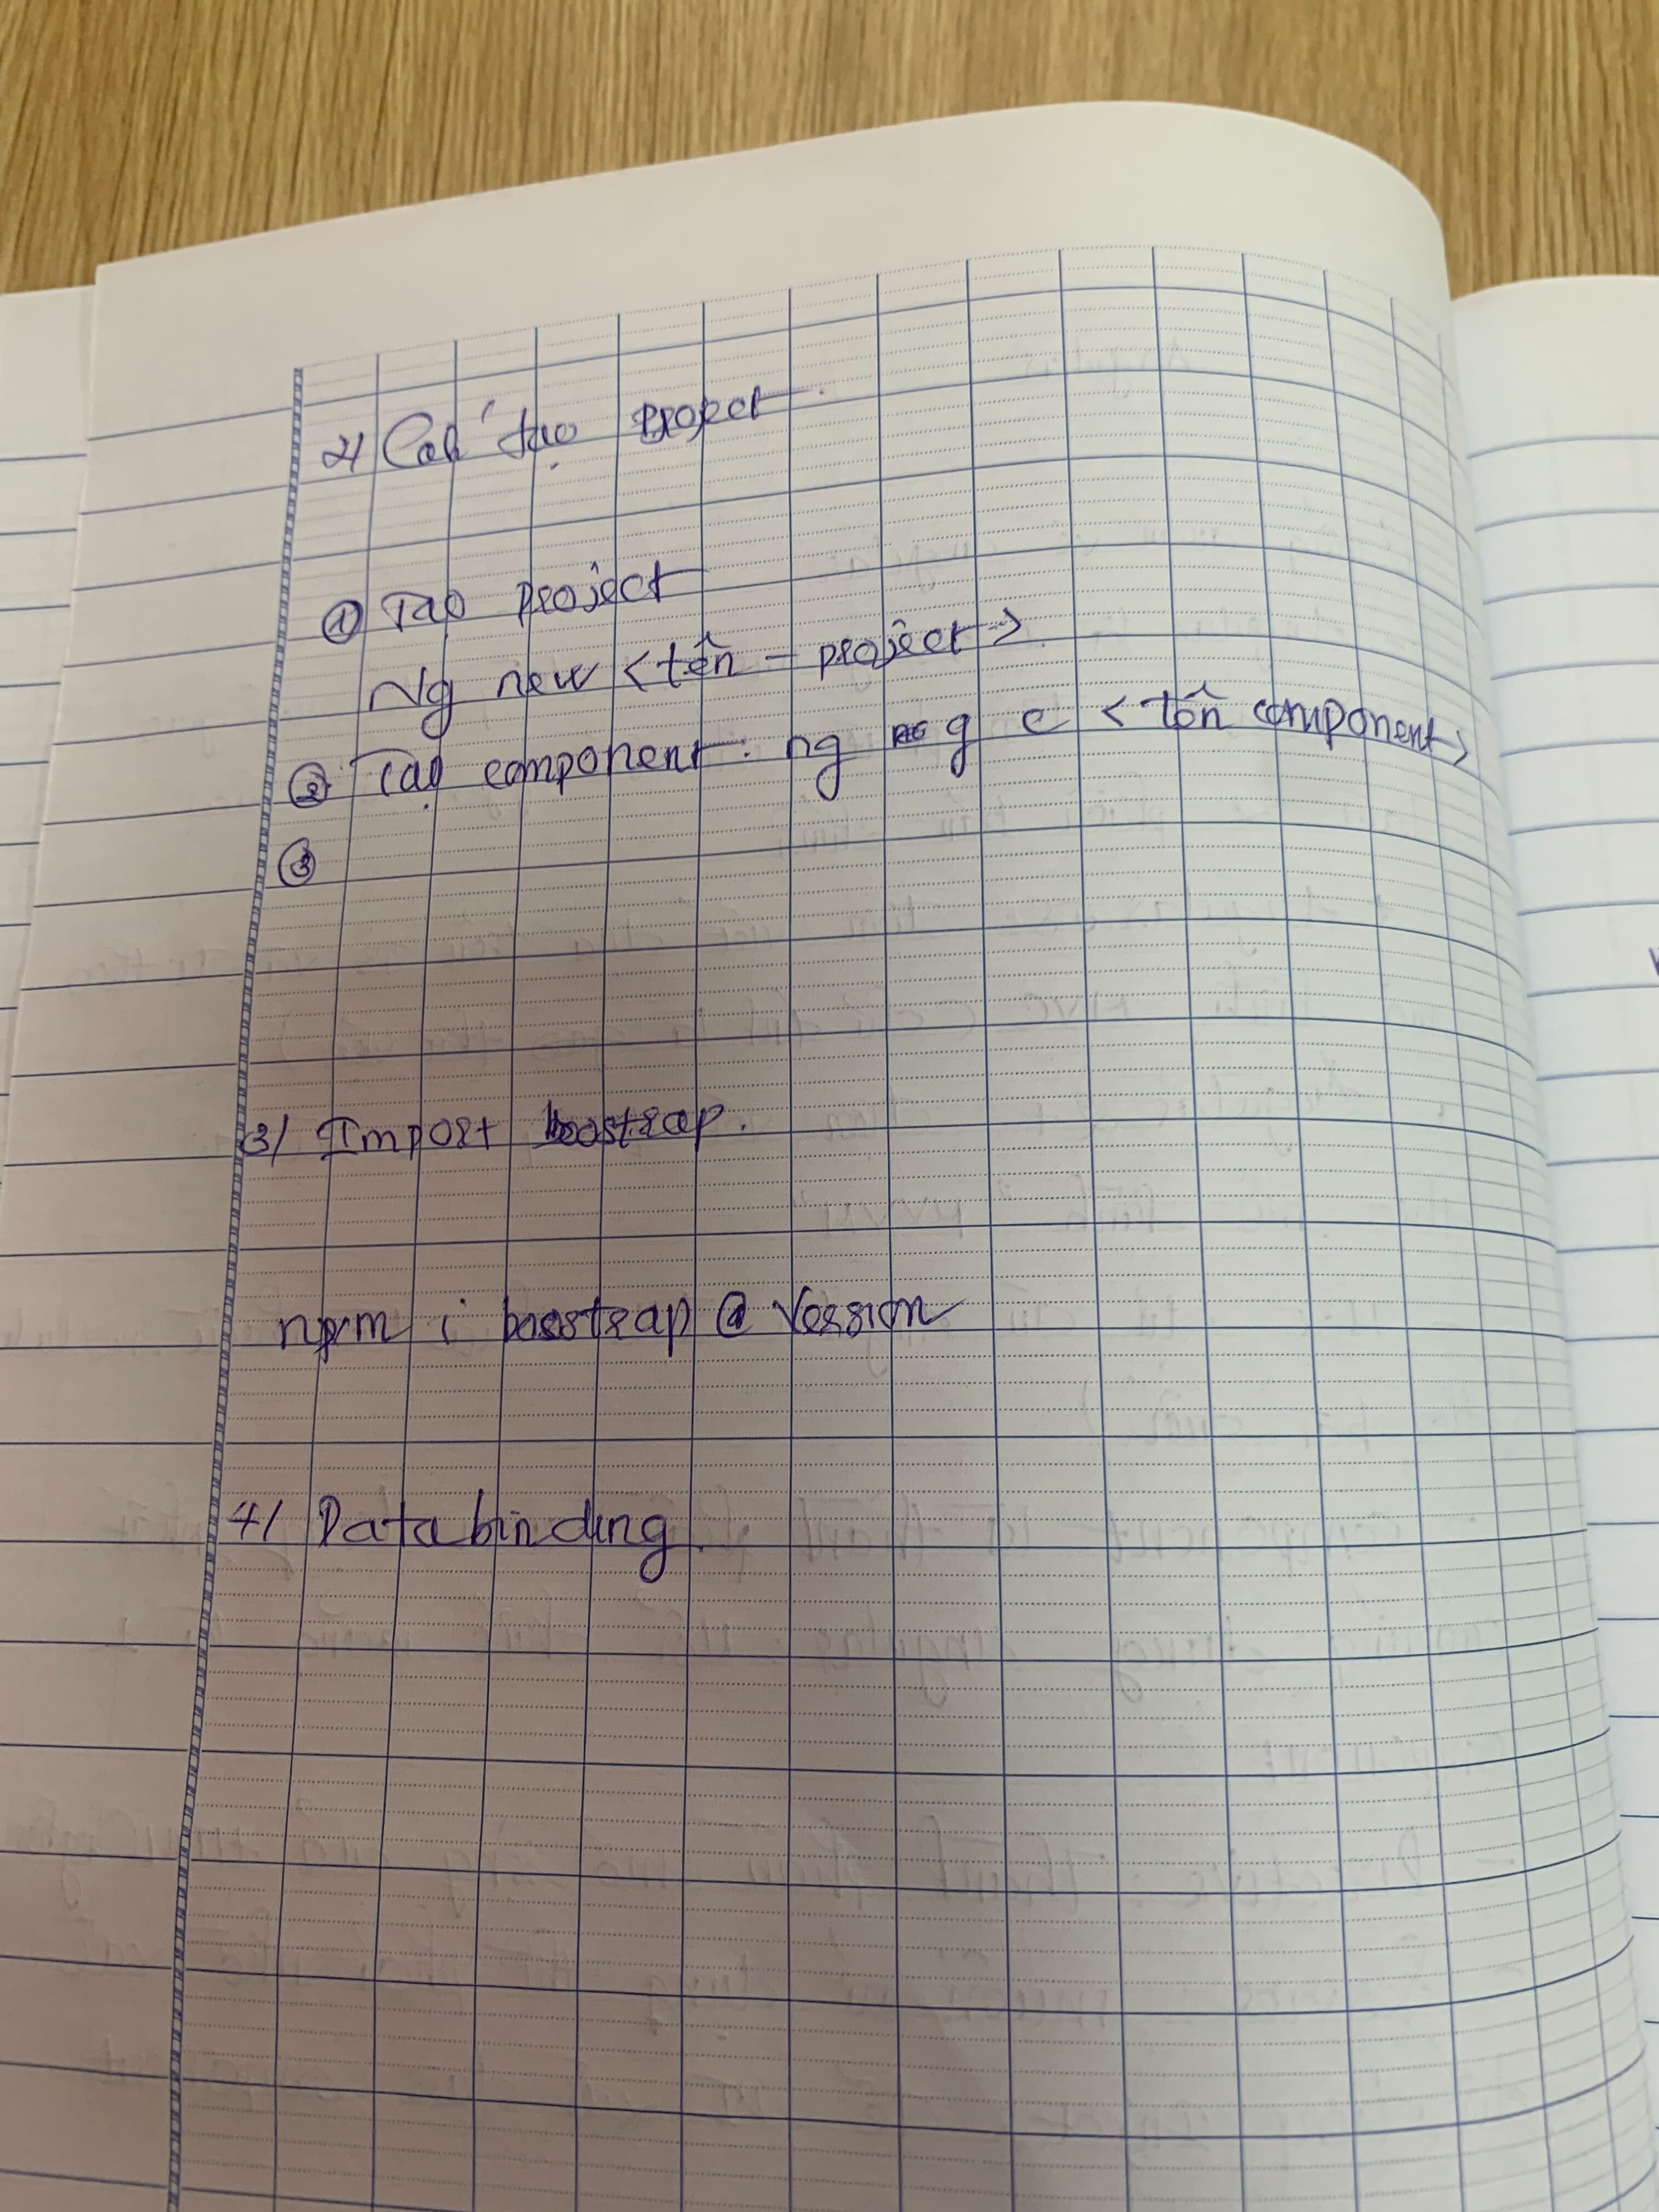 2/ Cách tạo project.
① Tạo project
Ng new <tên - project>
② Tạo component : ng g c <tên component>
③
3/ Import boostrap.
npm i boostrap @ Version
4/ Data binding.